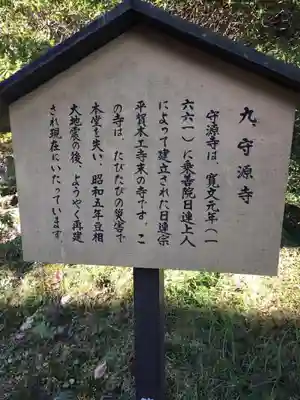 九、守源寺
守源寺は、寛文元年(一
六六一)に乗善院日連上人
によって建立された日蓮宗
平賀本土寺末の寺です。こ
の寺は、たびたびの災害で
本堂を失い、昭和五年豆相
大地震の後、ようやく再建
され現在にいたっています。